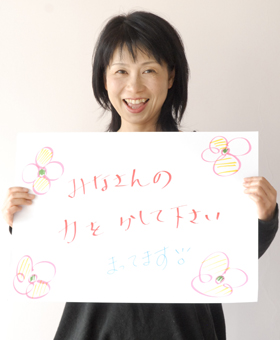 みなさんの
力を かして下さい
まってます